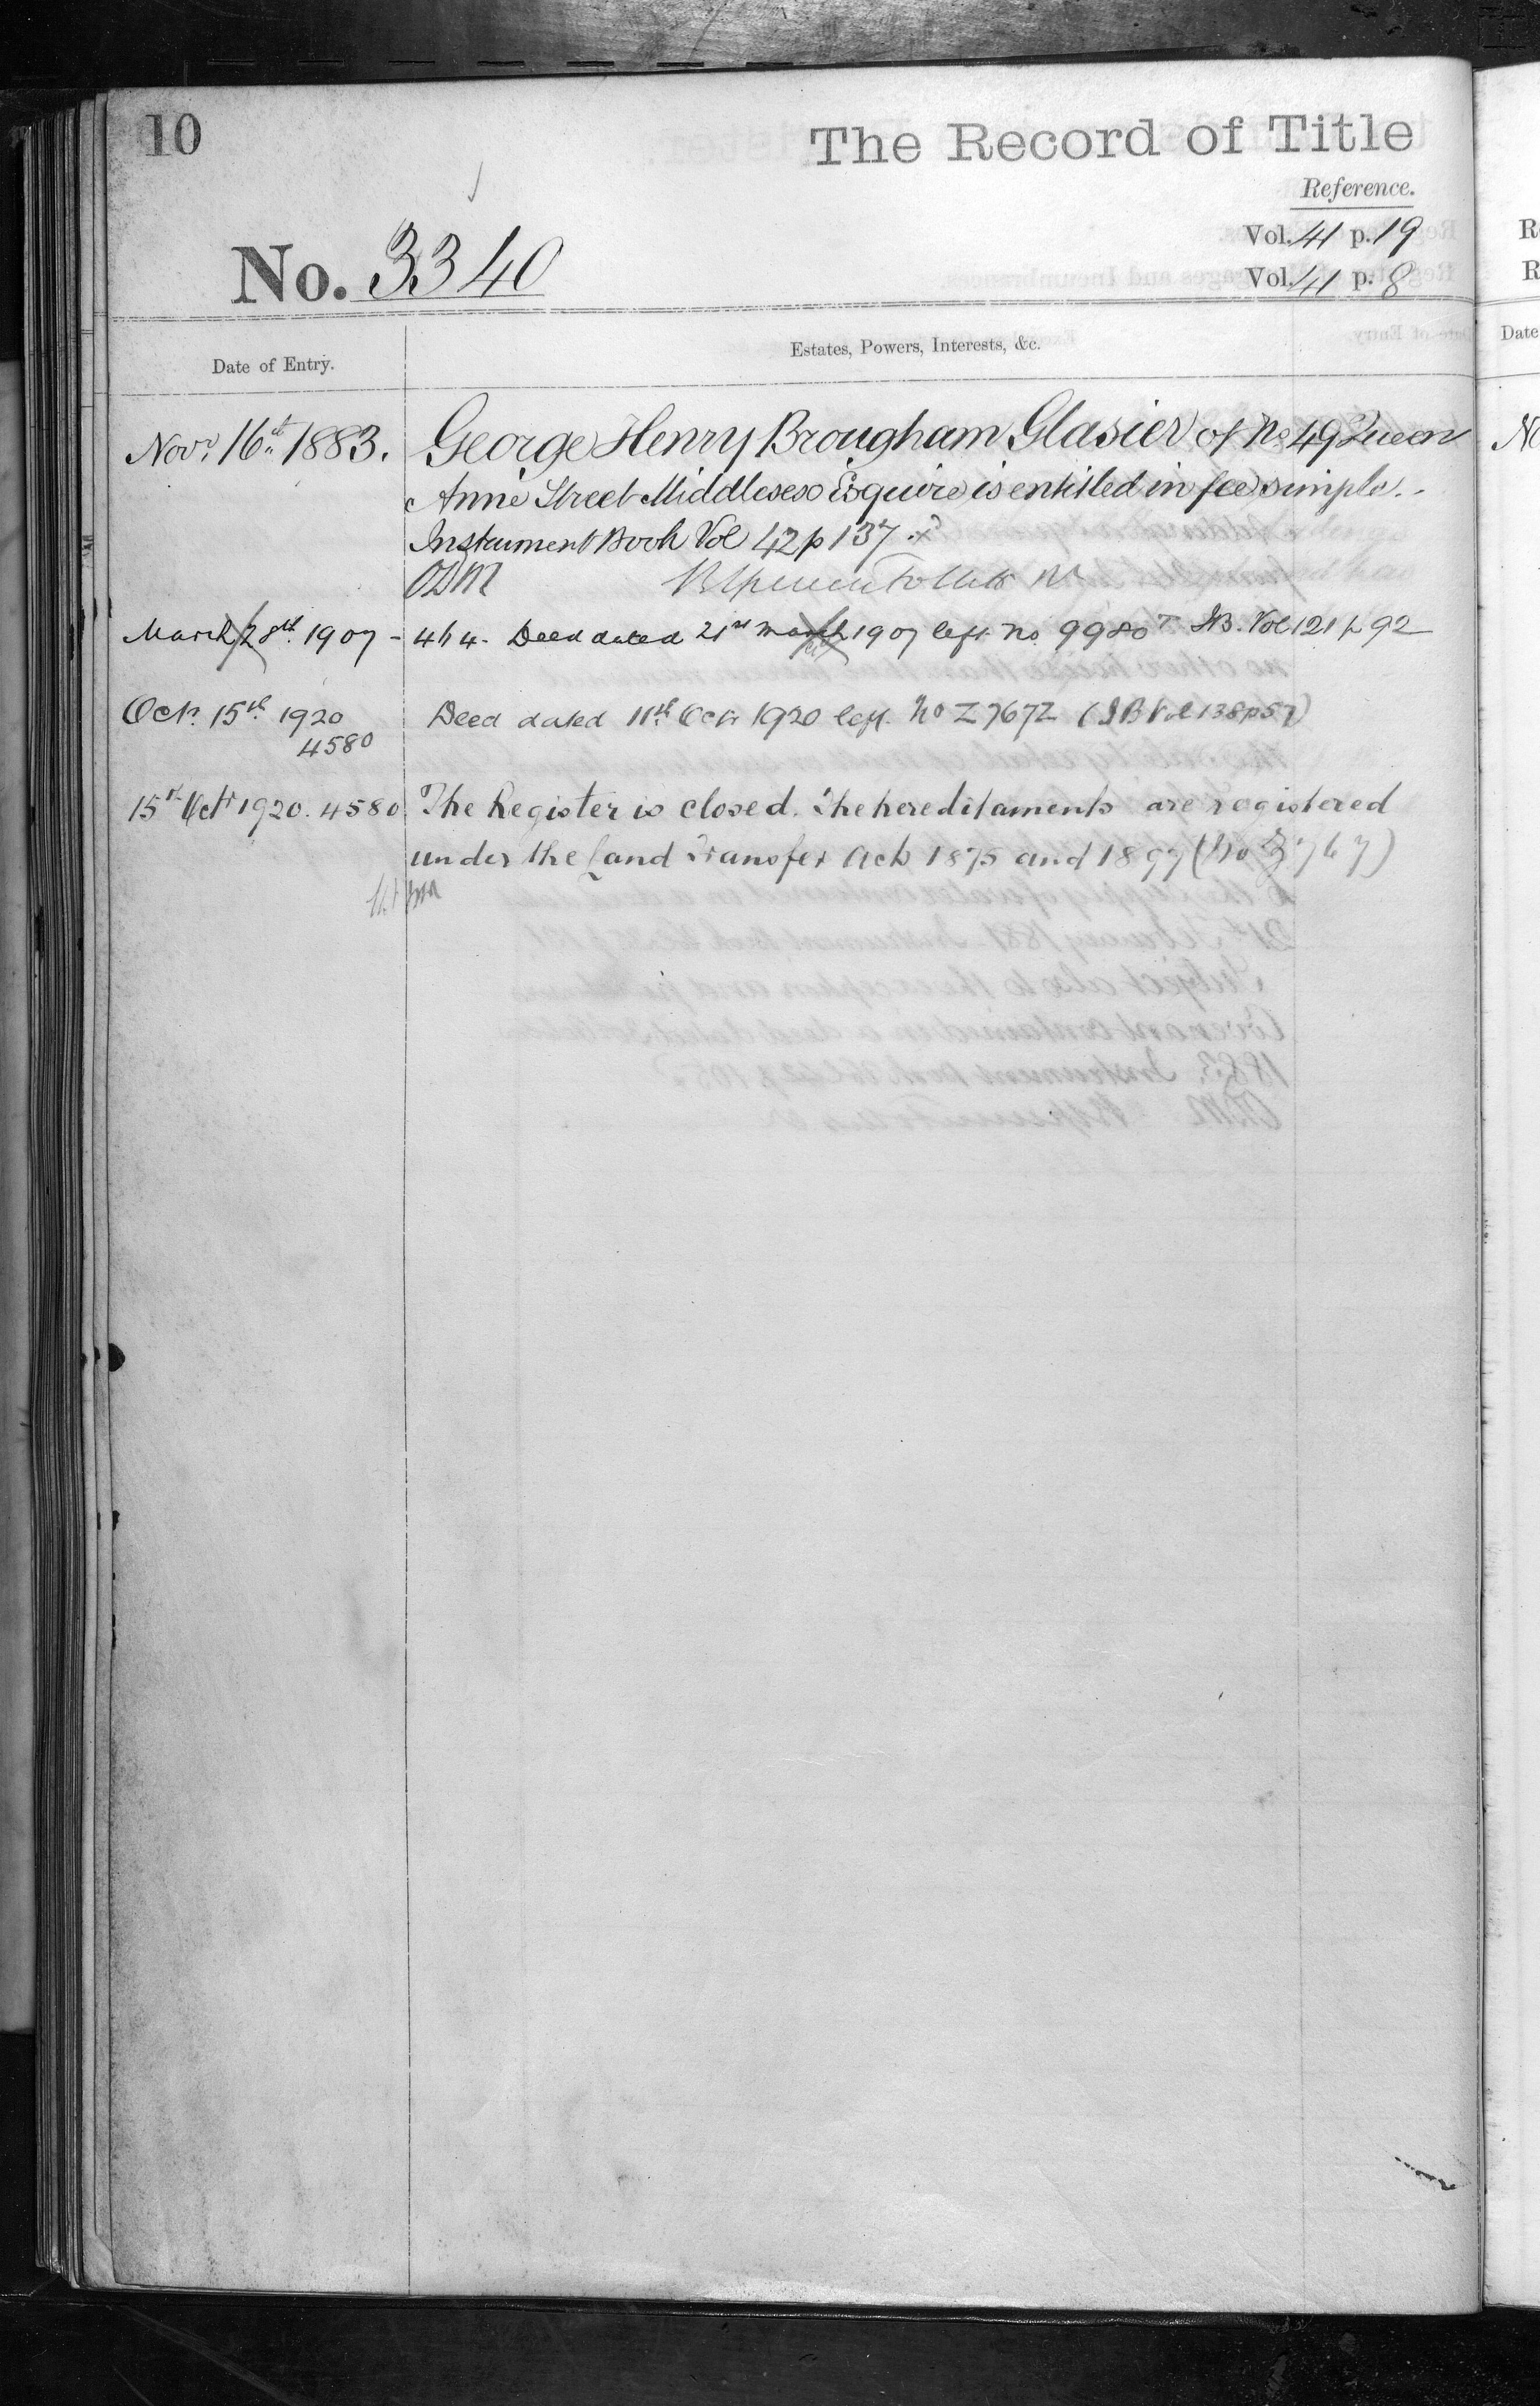 10
The Record of Title
Reference.
Vol. 41 p. 19
Vol. 41 p. 8
No. 3340
Date of Entry.
Estates, Powers, Interests, &c.
Novr. 16th 1883.
George Henry Brougham Glasier of No 49 Queen
Anne Street Middlesex Esquire is entitled in fee simple.
Instrument Book Vol 42 p 137.
ODM
March 28th 1907 - 464. Deed dated 21st March 1907 left no 9980 IB. Vol 121 p 92
Octr. 15th 1920
4580
Deed dated 11th Octr 1920 left. No Z 767Z (IB Vol 138 p 57)
15th Octr 1920. 4580
The Register is closed. The hereditaments are registered
under the Land Transfer Acts 1875 and 1897